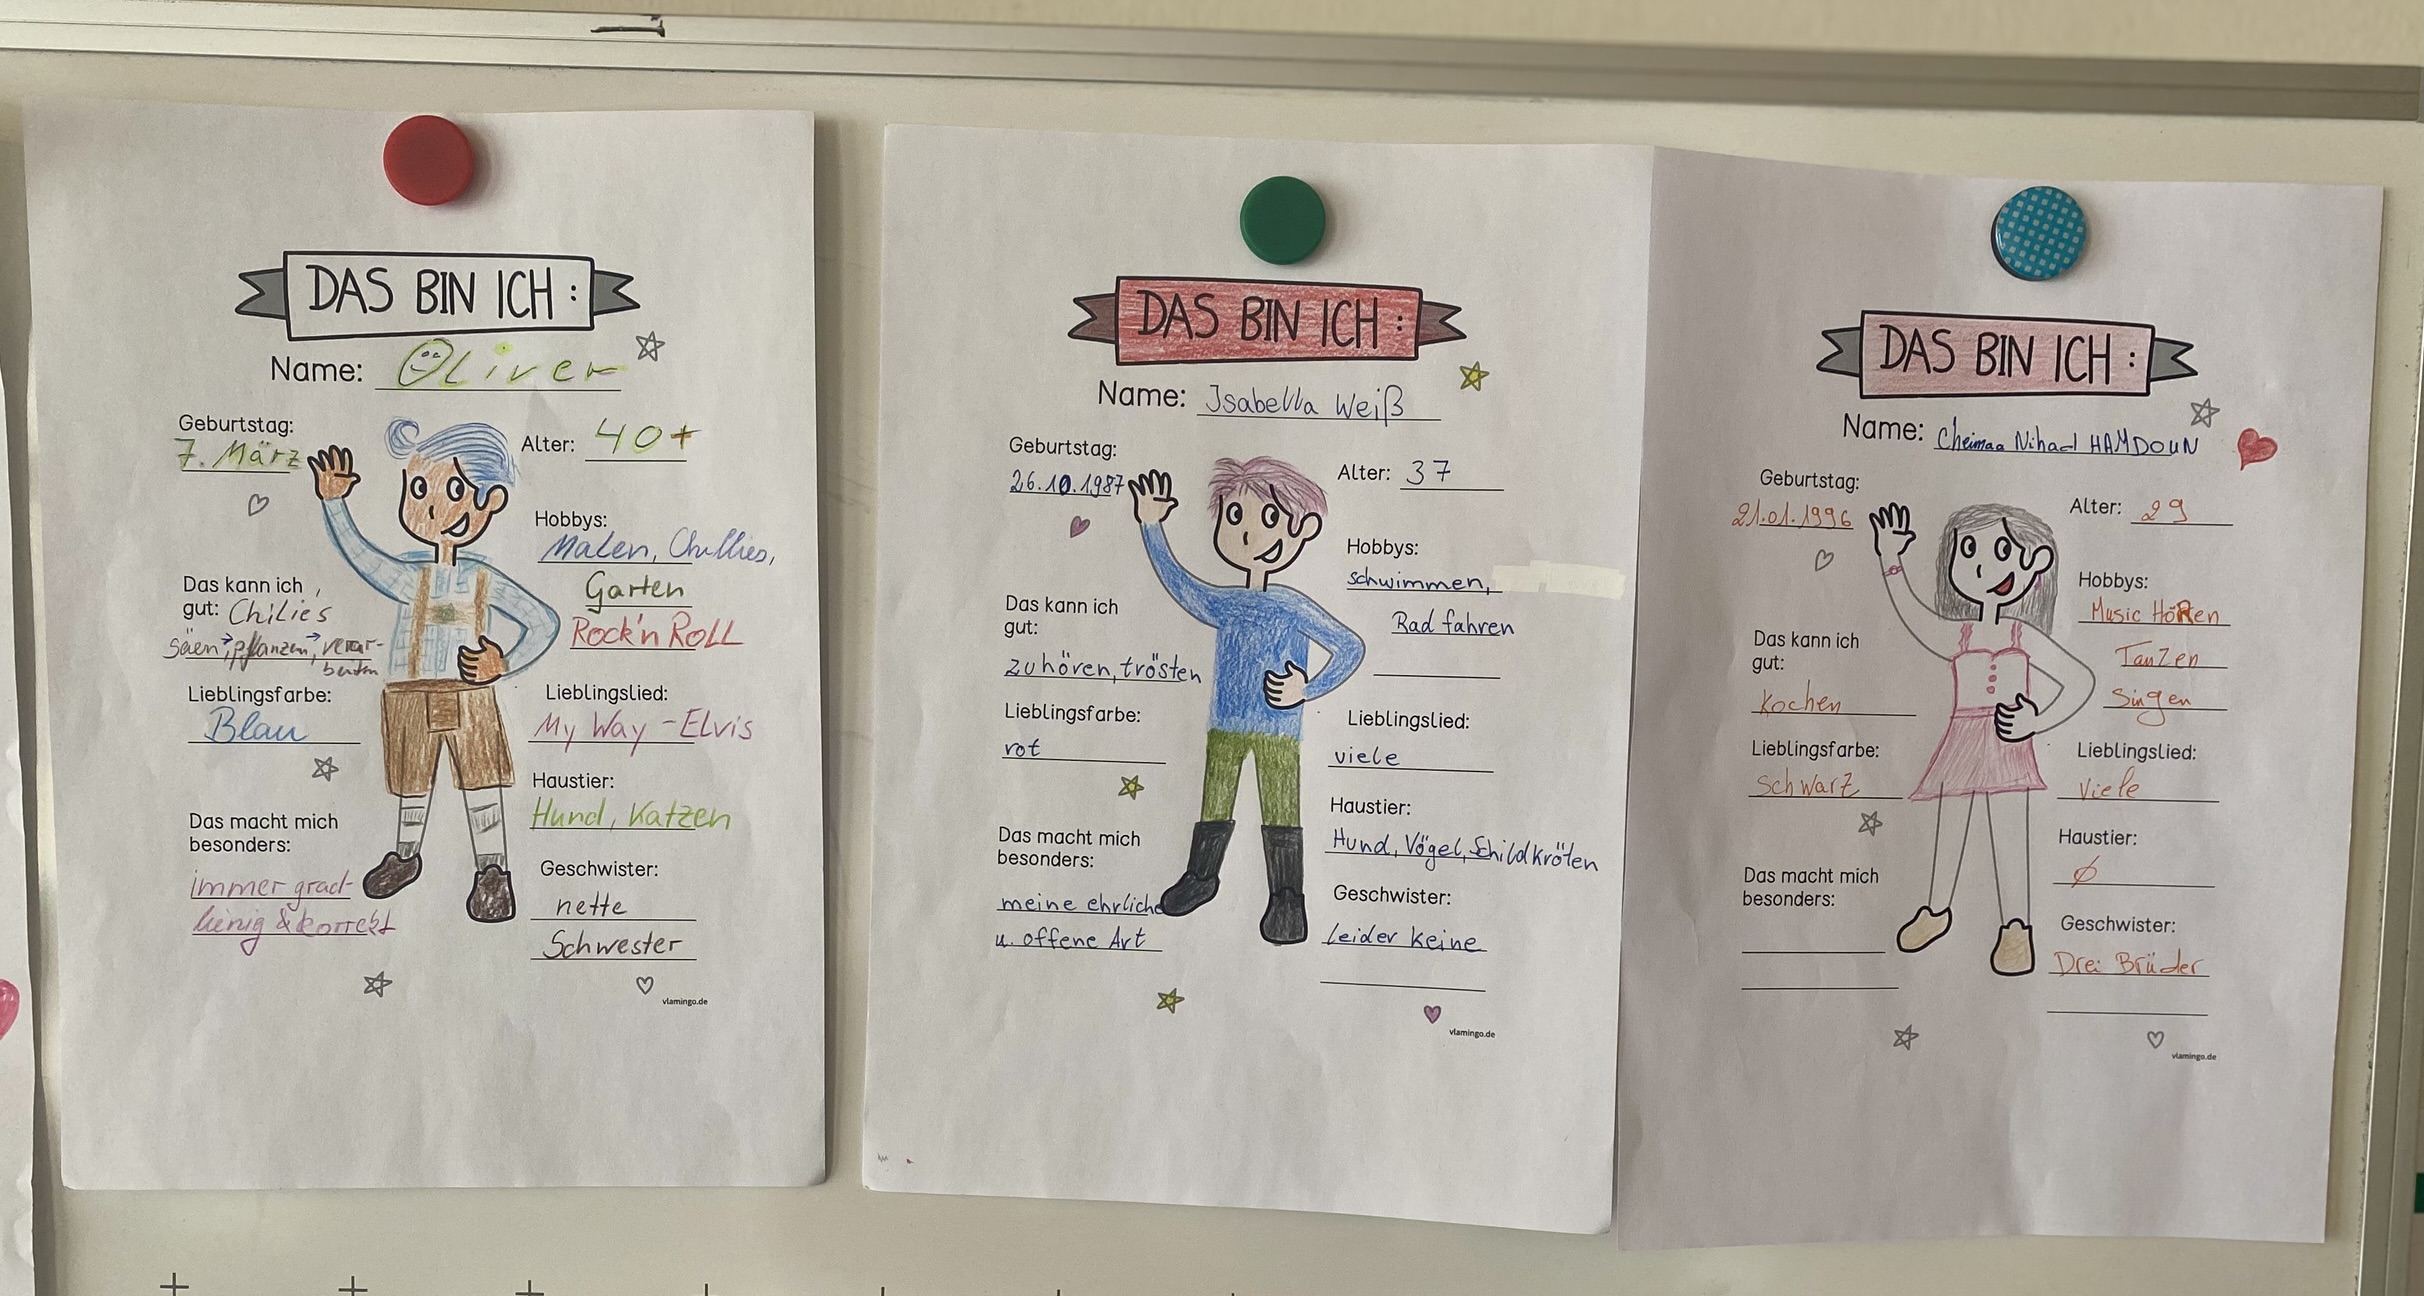 DAS BIN ICH:
Name: Oliver
Geburtstag:
7. März
Alter: 40+
Hobbys:
Malen, Chillies,
Garten
Rock'n ROLL
Das kann ich
gut: Chilies
säen, pflanzen, verar-
beiten
Lieblingsfarbe:
Blau
Lieblingslied:
My Way - Elvis
Haustier:
Hund, Katzen
Das macht mich
besonders:
immer grad-
linig & korrekt
Geschwister:
nette
Schwester
vlamingo.de
DAS BIN ICH:
Name: Isabella Weiß
Geburtstag:
26.10.1987
Alter: 37
Hobbys:
schwimmen,
Rad fahren
Das kann ich
gut:
zuhören, trösten
Lieblingsfarbe:
rot
Lieblingslied:
viele
Haustier:
Hund, Vögel, Schildkröten
Das macht mich
besonders:
meine ehrliche
u. offene Art
Geschwister:
leider keine
vlamingo.de
DAS BIN ICH:
Name: Cheimaa Nihad HAMDOUN
Geburtstag:
21.01.1996
Alter: 29
Hobbys:
Music HöRen
Tanzen
Singen
Das kann ich
gut:
Kochen
Lieblingsfarbe:
Schwarz
Lieblingslied:
Viele
Haustier:
Ø
Das macht mich
besonders:
Geschwister:
Drei Brüder
vlamingo.de